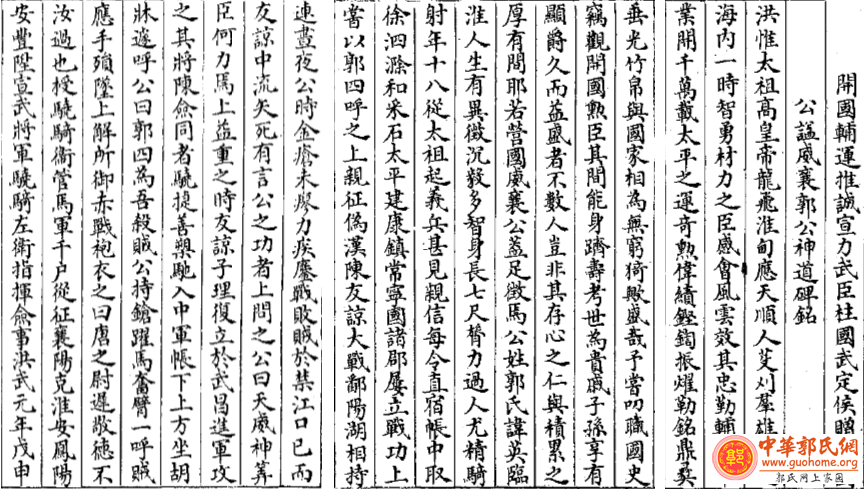 開國輔運推誠宣力武臣柱國武定侯贈
公謚威襄郭公神道碑銘
洪惟太祖高皇帝龍飛淮甸應天順人芟刈羣雄
海內一時智勇材力之臣感會風雲效其忠勤輔
業開千萬載太平之運奇勲偉績鏗鍧振燿勒銘鼎彛
垂光竹帛與國家相為無窮猗歟盛哉予嘗叨職國史
竊觀開國勲臣其間能身躋壽考世為貴戚子孫享有
顯爵久而益盛者不數人豈非其存心之仁與積累之
厚有間耶若營國威襄公蓋足徵焉公姓郭氏諱英臨
淮人生有異徵沉毅多智身長七尺膂力過人尤精騎
射年十八從太祖起義兵甚見親信每令直宿帳中取
徐泗滁和采石太平建康鎮常寧國諸郡屢立戰功上
嘗以郭四呼之上親征偽漢陳友諒大戰鄱陽湖相持
連晝夜公時金瘡未瘳力疾鏖戰敗賊於禁江口已而
友諒中流矢死有言公之功者上問之公曰天威神筭
臣何力焉上益重之時友諒子理復立於武昌進軍攻
之其將陳僉同者驍捷善槊馳入中軍帳下上方坐胡
牀遽呼公曰郭四為吾殺賊公持鎗躍馬奮臂一呼賊
應手殞墜上解所御赤戰袍衣之曰唐之尉遲敬德不
汝過也授驍騎衛管馬軍千戶從征襄陽克淮安鳳陽
安豐陞宣武將軍驍騎左衛指揮僉事洪武元年戊申
中華郭氏網
www.guohome.org
郭氏网上家园